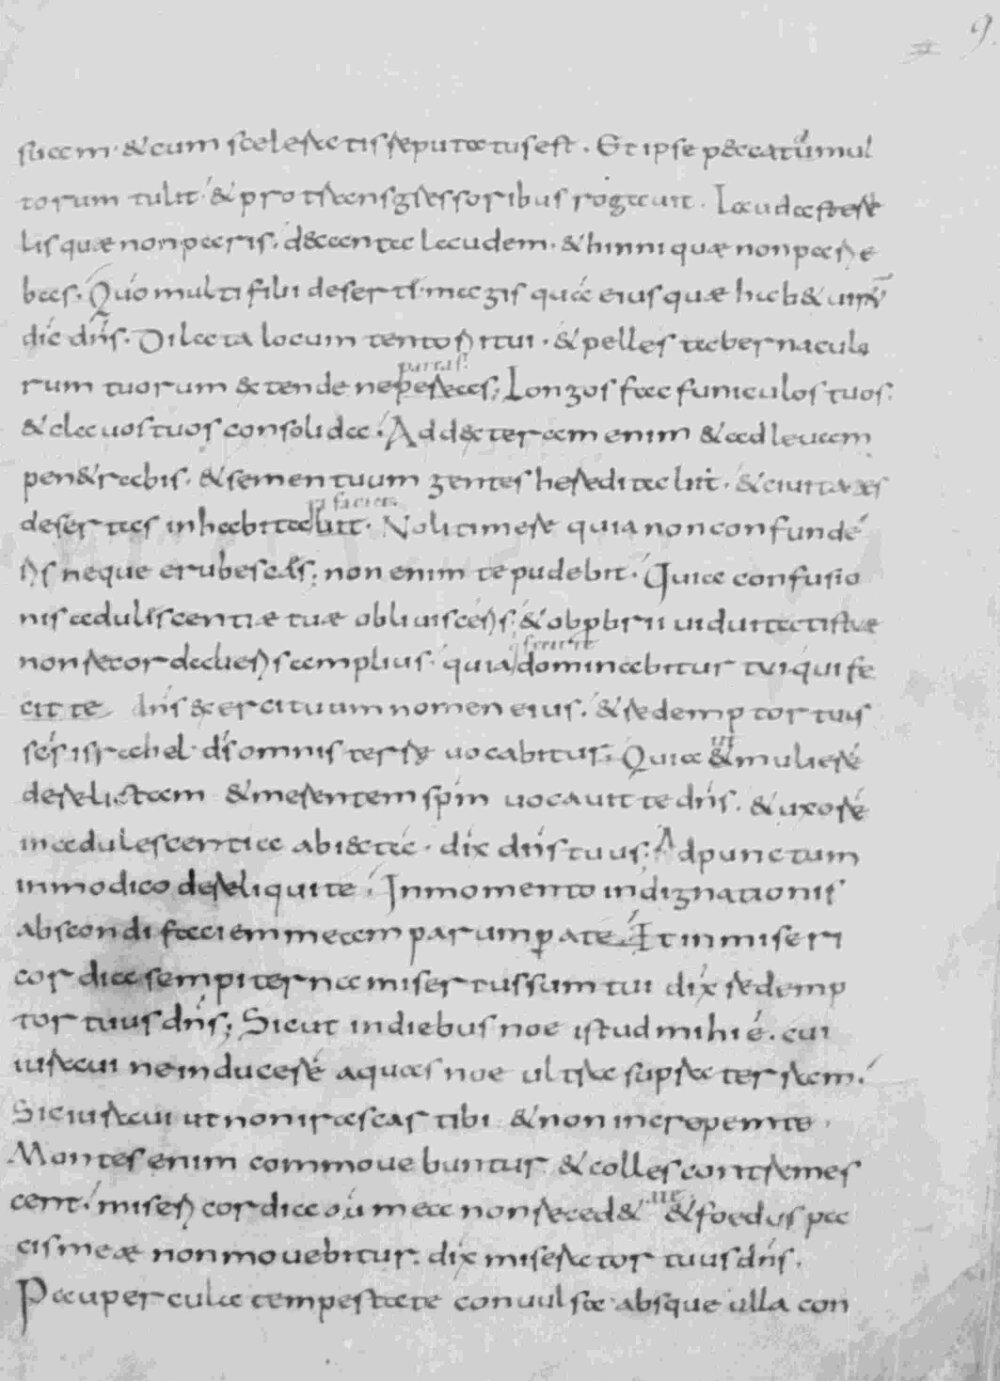 9.
suam · & cum sceleratis reputatus est . Et ipse peccatũ mul
torum tulit · & pro transgressoribus rogauit . Lauda stere
lis quæ non paris . decanta laudem · & hinni quæ non parie
bas . Quō multi filii desertę magis quā eius quæ hab& uirũ
dic dñs . Dilata locum tentorii tui · & pelles tabernaculo
parcas
rum tuorum extende ne peras ; Longos fac funiculos tuos .
& clauos tuos consolida . Ad dexteram enim & ad leuam
pen&rabis . & semen tuum gentes hereditabit . & ciuitates
faciem
desertas inhabitabit . Noli timere quia non confundē
ris neque erubesces ; non enim te pudebit . Quia confusio
nis adulescentiæ tuæ obliuisceris ; & obprobrii uiduitatis tuæ
non recordaberis amplius . quia dominabitur tui qui fe
cit te dñs exercituum nomen eius . & redemptor tuus
scs israhel ds omnis terrę uocabitur ; Quia ut & mulierē
derelictam & merentem spm uocauit te dñs . & uxorē
in adulescentia abiectā . dix dñs tuus ; Ad punctum
in modico dereliqui te . In momento indignationis
abscondi faciem meam parumper a te . Et in miseri
cordia sempiterna misertus sum tui dix redemp
tor tuus dñs ; Sicut in diebus noe istud mihi ē . cui
iuraui ne inducerē aquas noe ultra supra terram .
Sic iuraui ut non irascar tibi & non increpem te .
Montes enim commouebuntur & colles contremes
cent . misericordia aũ mea non reced& & foedus pa
cis meæ non mouebitur . dix miserator tuus dñs .
Paupercula tempestate conuulsa absque ulla con